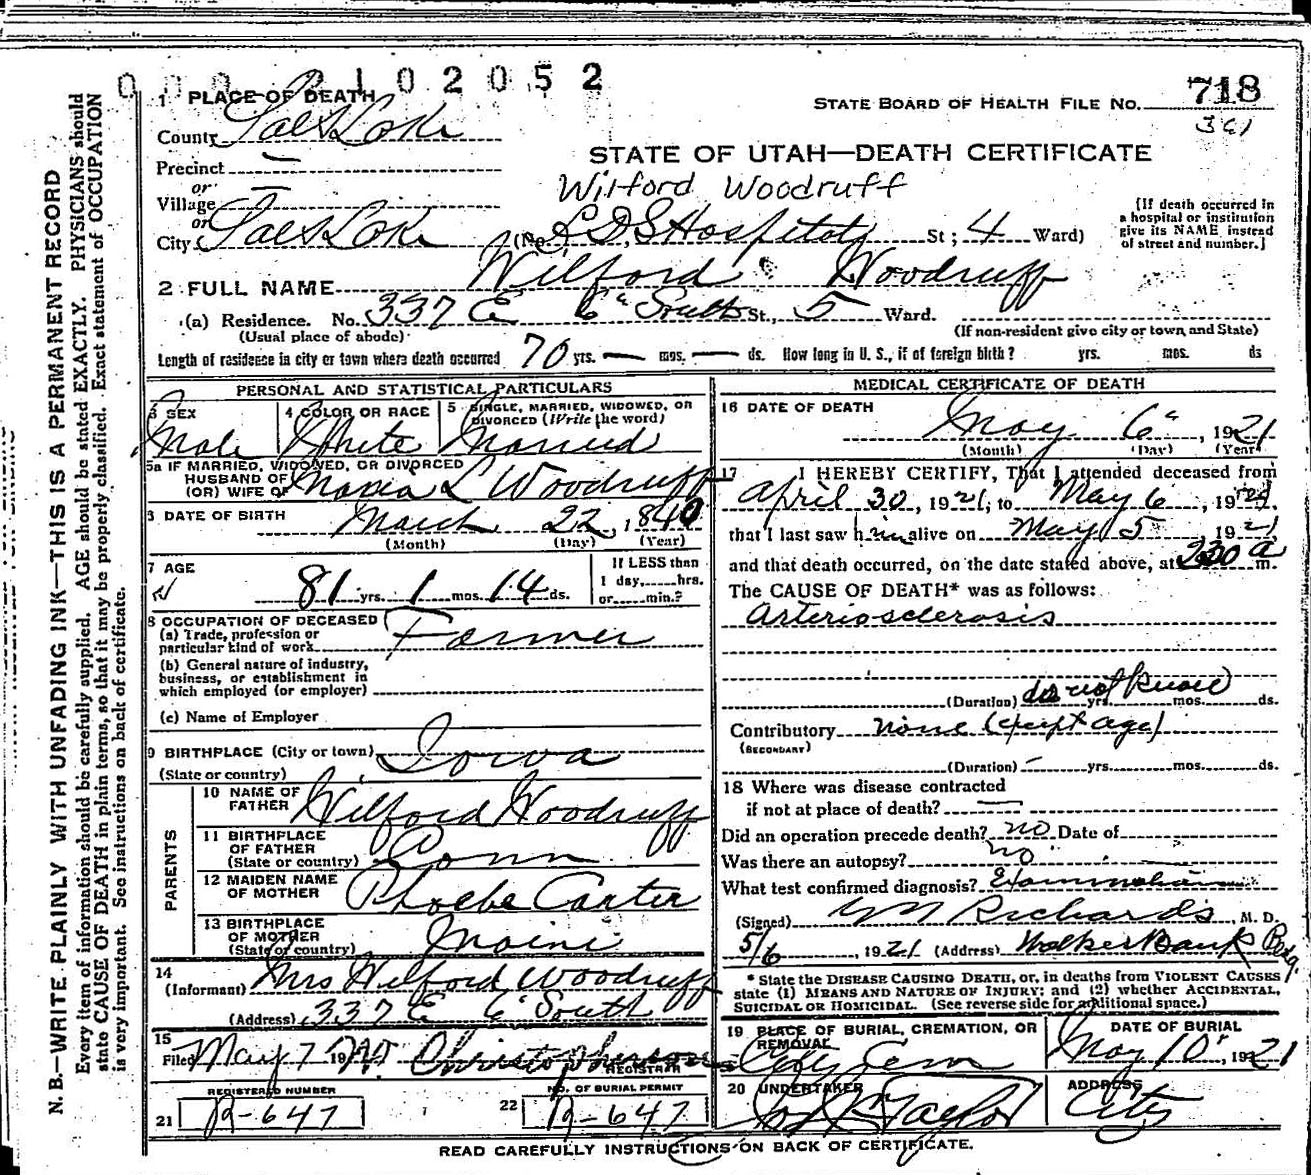 102052
1 PLACE OF DEATH
STATE BOARD OF HEALTH FILE NO. 718
361
County Salt Lake
STATE OF UTAH—DEATH CERTIFICATE
Precinct
Wilford Woodruff
or
Village
or
City Salt Lake (No. LDS Hospital St; 4 Ward)
[If death occurred in
a hospital or institution
give its NAME instead
of street and number.]
2 FULL NAME Wilford Woodruff
(a) Residence. No. 337 E 6" South St., 5 Ward.
(Usual place of abode) (If non-resident give city or town and State)
Length of residence in city or town where death occurred 70 yrs. — mos. — ds. How long in U. S., if of foreign birth? yrs. mos. ds
PERSONAL AND STATISTICAL PARTICULARS
3 SEX
Male
4 COLOR OR RACE
White
5 SINGLE, MARRIED, WIDOWED, OR
DIVORCED (Write the word)
Married
5a IF MARRIED, WIDOWED, OR DIVORCED
HUSBAND OF
(OR) WIFE OF
L Woodruff
6 DATE OF BIRTH March 22, 1840
(Month) (Day) (Year)
7 AGE
81 yrs. 1 mos. 14 ds.
If LESS than
1 day,......hrs.
or......min.?
8 OCCUPATION OF DECEASED
(a) Trade, profession or
particular kind of work Farmer
(b) General nature of industry,
business, or establishment in
which employed (or employer)
(c) Name of Employer
9 BIRTHPLACE (City or town) Iowa
(State or country)
PARENTS
10 NAME OF
FATHER Wilford Woodruff
11 BIRTHPLACE
OF FATHER
(State or country) Conn
12 MAIDEN NAME
OF MOTHER Phoebe Carter
13 BIRTHPLACE
OF MOTHER
(State or country) Maine
14
(Informant) Mrs Wilford Woodruff
(Address) 337 E 6 South
15
Filed May 7 19 Christopherson
REGISTRAR
REGISTERED NUMBER
21 R-647
NO. OF BURIAL PERMIT
22 R-647
MEDICAL CERTIFICATE OF DEATH
16 DATE OF DEATH
May 6", 1921
(Month) (Day) (Year)
17 I HEREBY CERTIFY, That I attended deceased from
April 30, 1921, to May 6, 1921,
that I last saw him alive on May 5 1921
and that death occurred, on the date stated above, at 230 a m.
The CAUSE OF DEATH* was as follows:
Arteriosclerosis
(Duration) do not know yrs. mos. ds.
Contributory none (except age)
(SECONDARY)
(Duration) — yrs. mos. ds.
18 Where was disease contracted
if not at place of death? —
Did an operation precede death? no Date of
Was there an autopsy? no
What test confirmed diagnosis? Examination
(Signed) Richards, M. D.
5/6, 1921 (Address) Walker Bank Bldg.
* State the DISEASE CAUSING DEATH, or, in deaths from VIOLENT CAUSES
state (1) MEANS AND NATURE OF INJURY; and (2) whether ACCIDENTAL,
SUICIDAL OR HOMICIDAL. (See reverse side for additional space.)
19 PLACE OF BURIAL, CREMATION, OR
REMOVAL
City Cem
DATE OF BURIAL
May 10", 1921
20 UNDERTAKER
Taylor
ADDRESS
City
READ CAREFULLY INSTRUCTIONS ON BACK OF CERTIFICATE.
N. B.—WRITE PLAINLY WITH UNFADING INK—THIS IS A PERMANENT RECORD
Every item of information should be carefully supplied. AGE should be stated EXACTLY. PHYSICIANS should
state CAUSE OF DEATH in plain terms, so that it may be properly classified. Exact statement of OCCUPATION
is very important. See instructions on back of certificate.